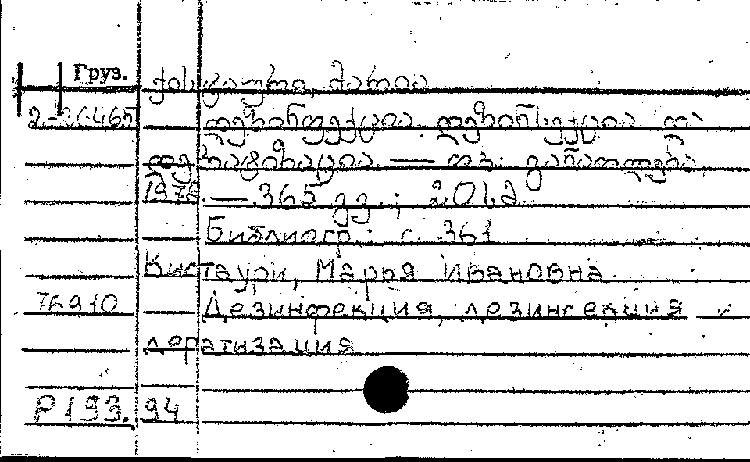 Груз. ქისტაური, მარია
2-26465 დეზინფექცია, დეზინსექცია და
დერატიზაცია — თბ. განათლება,
197 — 365 გვ.; 20 სმ
Библиогр.: с. 361
Кистаури, Мария Ивановна
76910 Дезинфекция, дезинсекция и
дератизация
P193.94